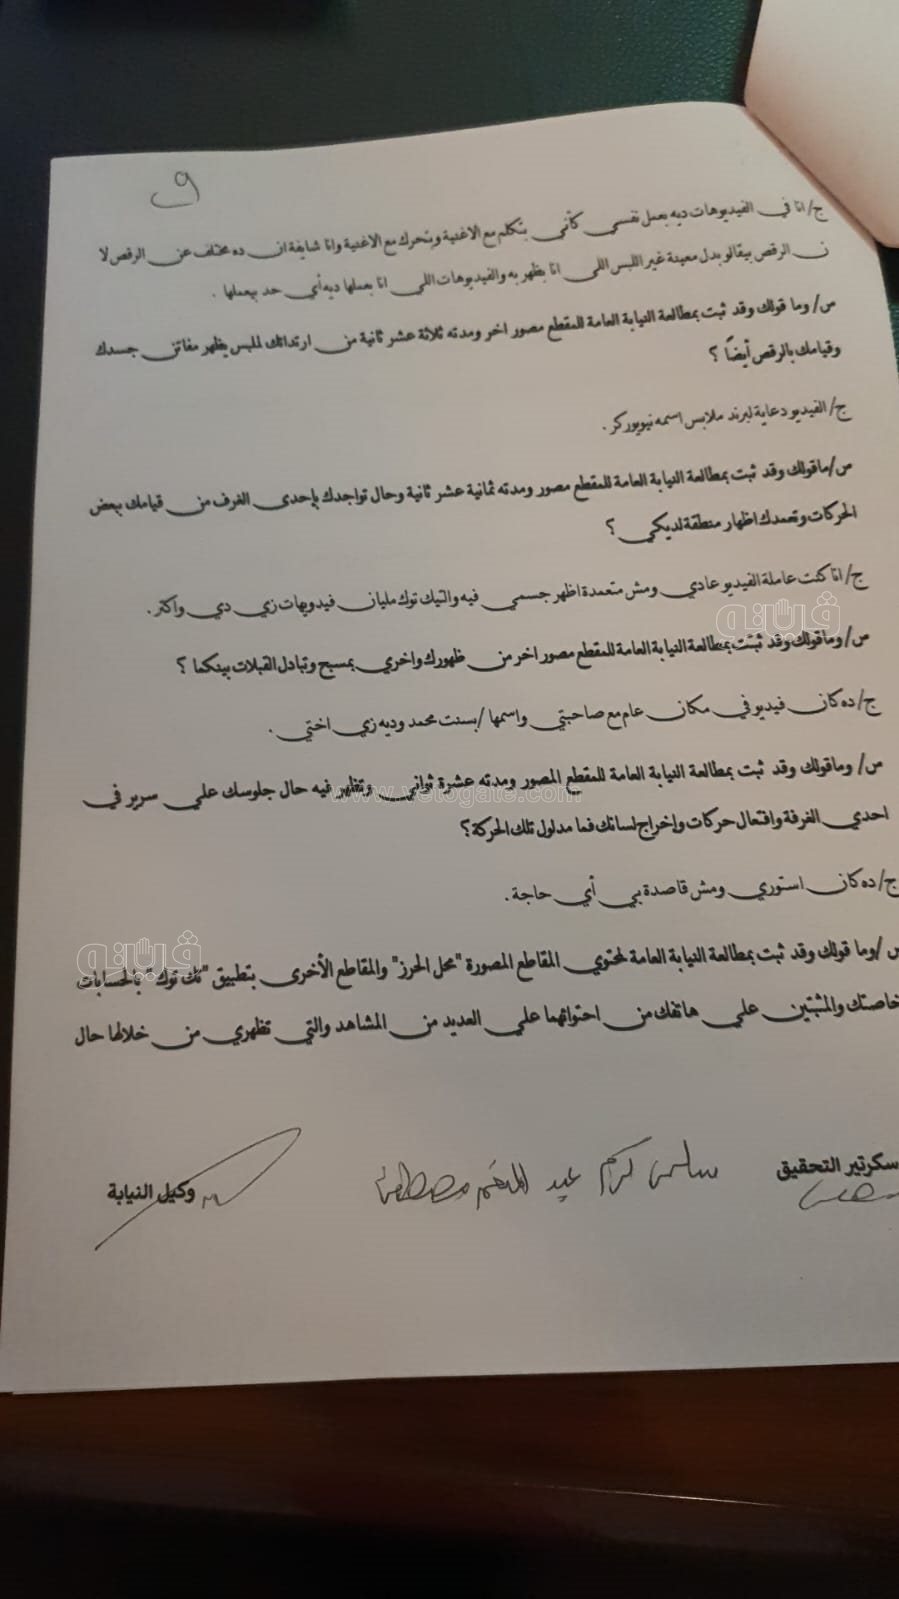 و
ج/ انا في الفيديوهات ديه بعمل نفسي كأني بتكلم مع الاغنية وبتحرك مع الاغنية وانا شايفة ان ده مختلف عن الرقص لا
ن الرقص بيقالو بدل معينة غير اللبس اللي انا بظهر به والفيديوهات اللي انا بعملها ديه أي حد بيعملها .
س/ وما قولك وقد ثبت بمطالعة النيابة العامة للمقطع مصور اخر ومدته ثلاثة عشر ثانية من ارتدائك لملبس يظهر مفاتن جسدك
وقيامك بالرقص أيضاً ؟
ج/ الفيديو دعاية لبرند ملابس اسمه نيويوركر .
س/ ماقولك وقد ثبت بمطالعة النيابة العامة للمقطع مصور ومدته ثمانية عشر ثانية وحال تواجدك بإحدى الغرف من قيامك ببعض
الحركات وتعمدك اظهار منطقة لديكي ؟
ج/ انا كنت عاملة الفيديو عادي ومش متعمدة اظهر جسمي فيه والتيك توك مليان فيدويهات زي دي واكتر .
س/ وماقولك وقد ثبت بمطالعة النيابة العامة للمقطع مصور اخر من ظهورك واخري بمسبح وتبادل القبلات بينكما ؟
ج/ ده كان فيديو في مكان عام مع صاحبتي واسمها /بسنت محمد وديه زي اختي .
س/ وماقولك وقد ثبت بمطالعة النيابة العامة للمقطع المصور ومدته عشرة ثواني وتظهر فيه حال جلوسك علي سرير في
احدي الغرفة وافتعال حركات وإخراج لسانك فما مدلول تلك الحركة ؟
ج/ ده كان استوري ومش قاصدة بي أي حاجة .
س /وما قولك وقد ثبت بمطالعة النيابة العامة لمحتوي المقاطع المصورة "محل الحرز" والمقاطع الأخرى بتطبيق "تك توك" بالحسابات
خاصتك والمثبتين علي هاتفك من احتوائهما علي العديد من المشاهد والتي تظهري من خلالها حال
سكرتير التحقيق
وكيل النيابة
فيتو
www.vetogate.com
فيتو